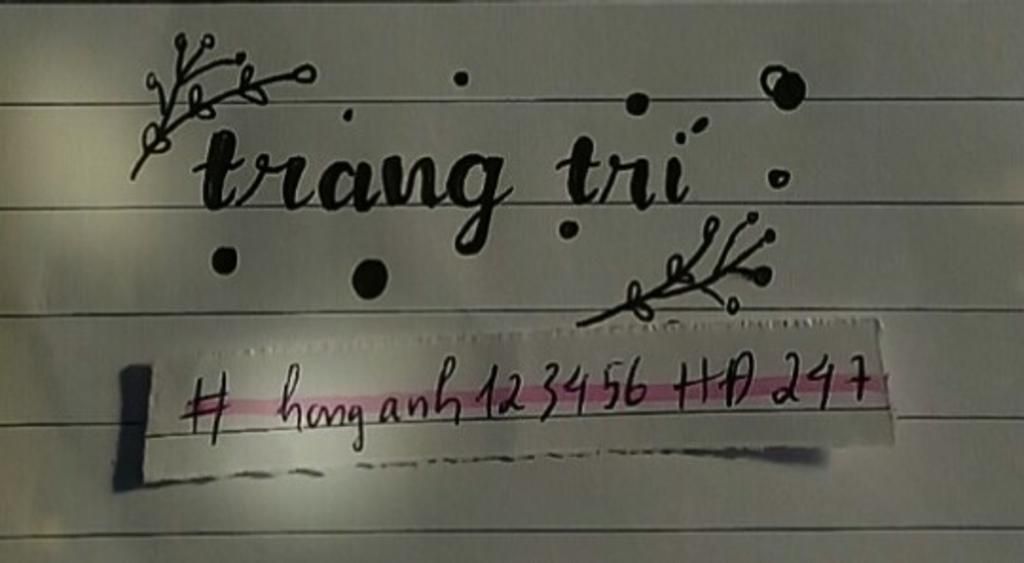 trang trí
# honganh123456 HA 247